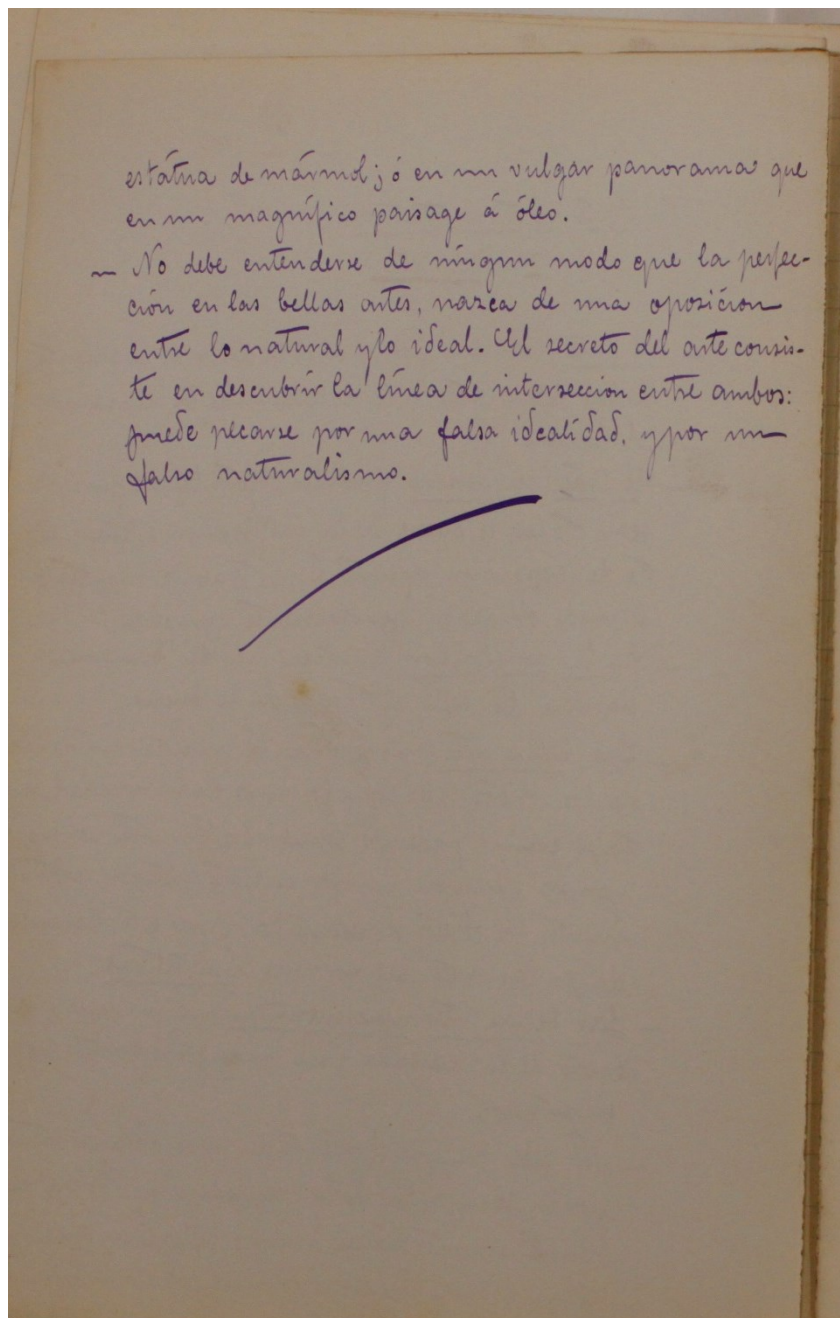 estátua de mármol; ó en un vulgar panorama que
en un magnífico paisage á óleo.
— No debe entenderse de ningun modo que la perfec-
ción en las bellas artes, nazca de una oposicion
entre lo natural y lo ideal. El secreto del arte consis-
te en descubrir la línea de interseccion entre ambos:
puede pecarse por una falsa idealidad, y por un
falso naturalismo.